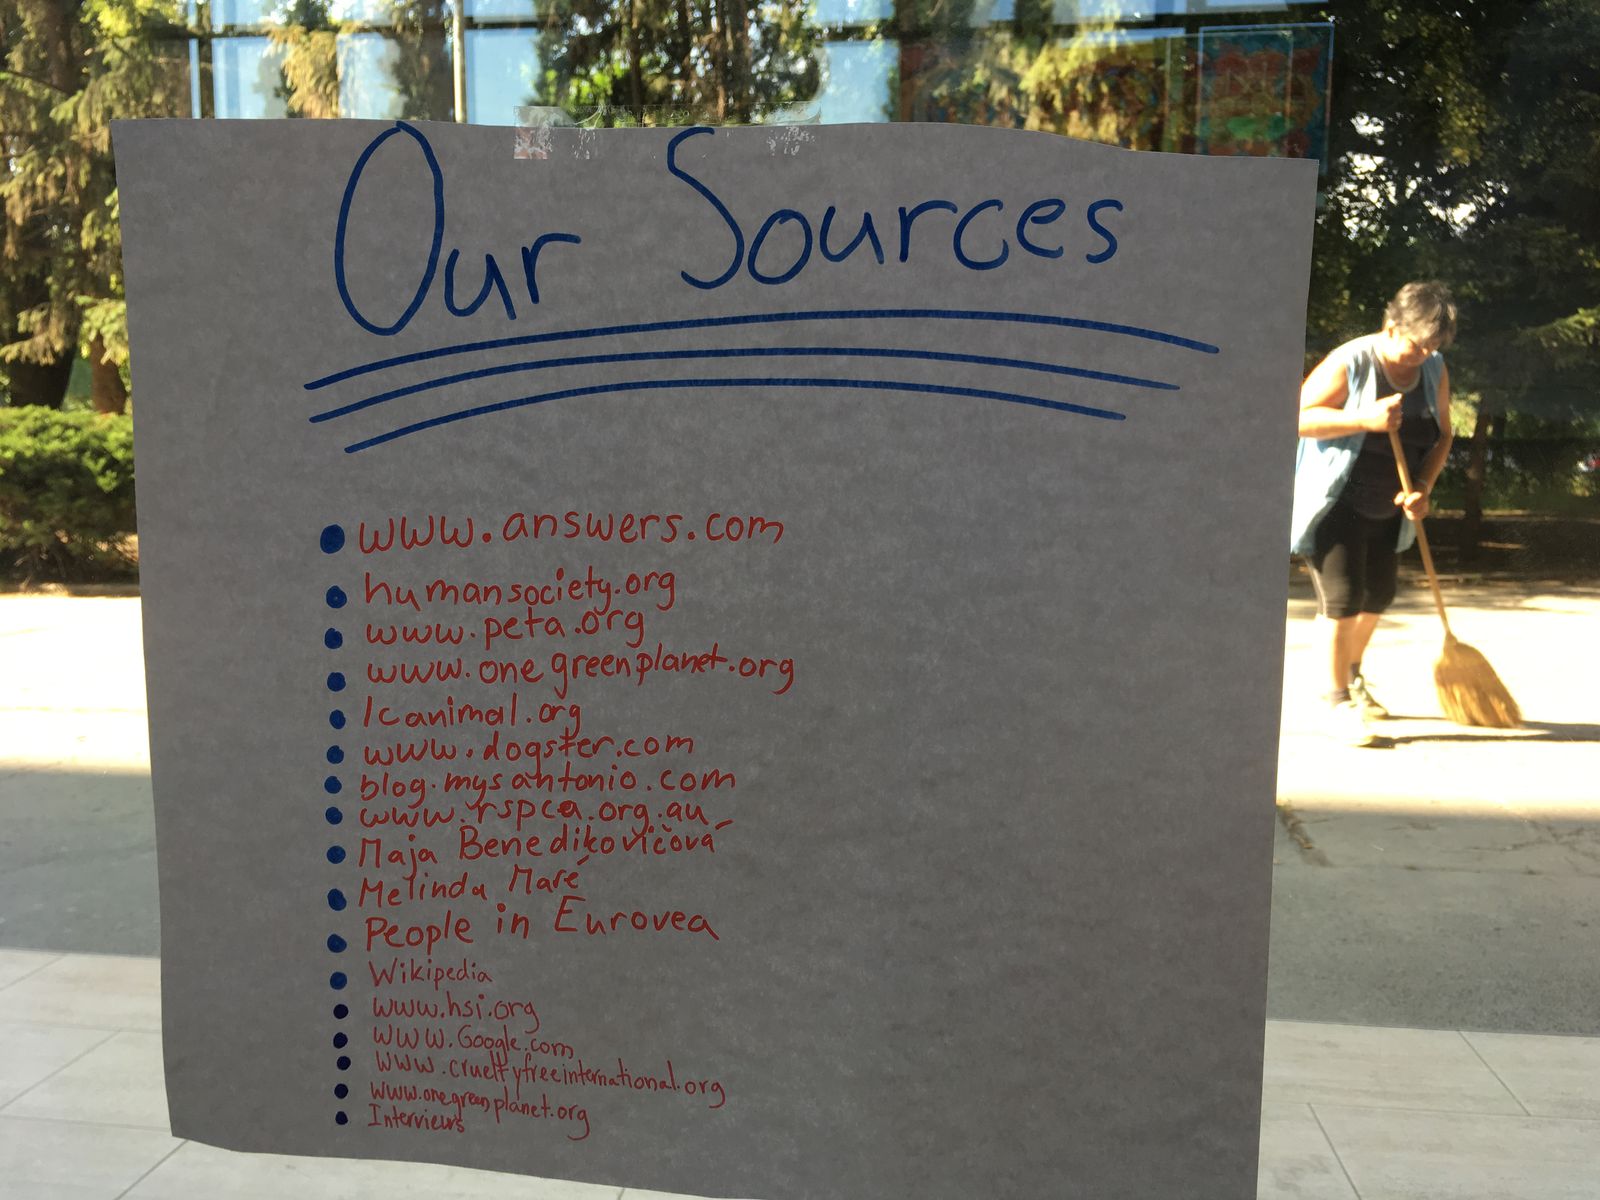 Our Sources
www.answers.com
humansociety.org
www.peta.org
www.onegreenplanet.org
lcanimal.org
www.dogster.com
blog.mysantonio.com
www.rspca.org.au
Maja Benedikovičová
Melinda Maré
People in Eurovea
Wikipedia
www.hsi.org
www.Google.com
www.crueltyfreeinternational.org
www.onegreenplanet.org
Interviews